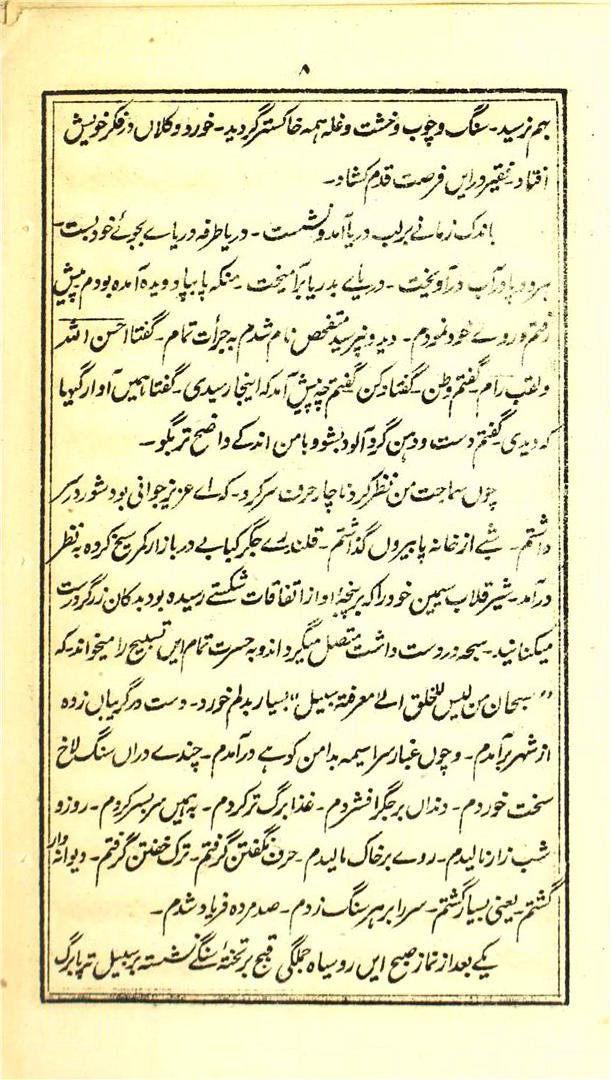 ۸
بہم نرسید۔ سنگ و چوب و خشت و غلہ ہمہ خاکستر گردید۔ خورد و کلاں در فکر خویش
افتاد۔ فقیر دراین فرصت قدم کشاد۔
باندک زمانے برلب دریا آمد و نشست۔ دریا طرفہ دریاے بجوئے خود بست
ہر دو پا در آب در آویخت۔ دریاے بدریا بر آمیخت۔ منکہ پا بپا دویدہ آمدہ بودم پیش
رفتم و روے خود نمودم۔ دید و نپرسید متفحص نام شدم بہ جرأت تمام۔ گفتا احسن اللہ
و لقب رام۔ گفتم وطن۔ گفتا دکن۔ گفتم چہ پیش آمد کہ اینجا رسیدی۔ گفتا ہمیں آوارگیہا
کہ دیدی۔ گفتم دست و دہن گرد آلود بشو و بامن اندکے واضح تر بگو۔
چوں سماجت من نظر کرد ناچار حرف سر کرد۔ کہ اے عزیز جوانی بود شور در سر
داشتم۔ شبے از خانہ پا بیروں گذاشتم۔ قلندرے جگر کبابے در بازار کمر سیخ کردہ بہ نظر
درآمد۔ شیر قلاب سیمین خود را کہ پنجۂ او از اتفاقات شکستے رسیدہ بود بدکان زرگر درست
میکنانید۔ سبحہ در دست داشت متصل میگردانید و بہ حسرت تمام ایں تسبیح را میخواند کہ
"سبحان من لیس للخلق الے معرفتہ سبیل" بسیار بدلم خورد۔ دست در گریباں زدہ
از شہر برآمدم۔ و چوں غبار سراسیمہ بدامن کوہے درآمدم۔ چندے دراں سنگ لاخ
سخت خوردم۔ دنداں بر جگر افشردم۔ غذا برگ تر کردم۔ بہ ہمیں سر بسر کردم۔ روز و
شب زار نالیدم۔ روے بر خاک مالیدم۔ حرف نگفتن گرفتم۔ ترک خفتن گرفتم۔ دیوانہ وار
گشتم۔ یعنی بسیار گشتم۔ سر را بر ہر سنگ زدم۔ صد مردہ فریاد شدم۔
یکے بعد از نماز صبح ایں روسیاہ جملگی قبح بر تختۂ سنگے نشستہ بر سبیل